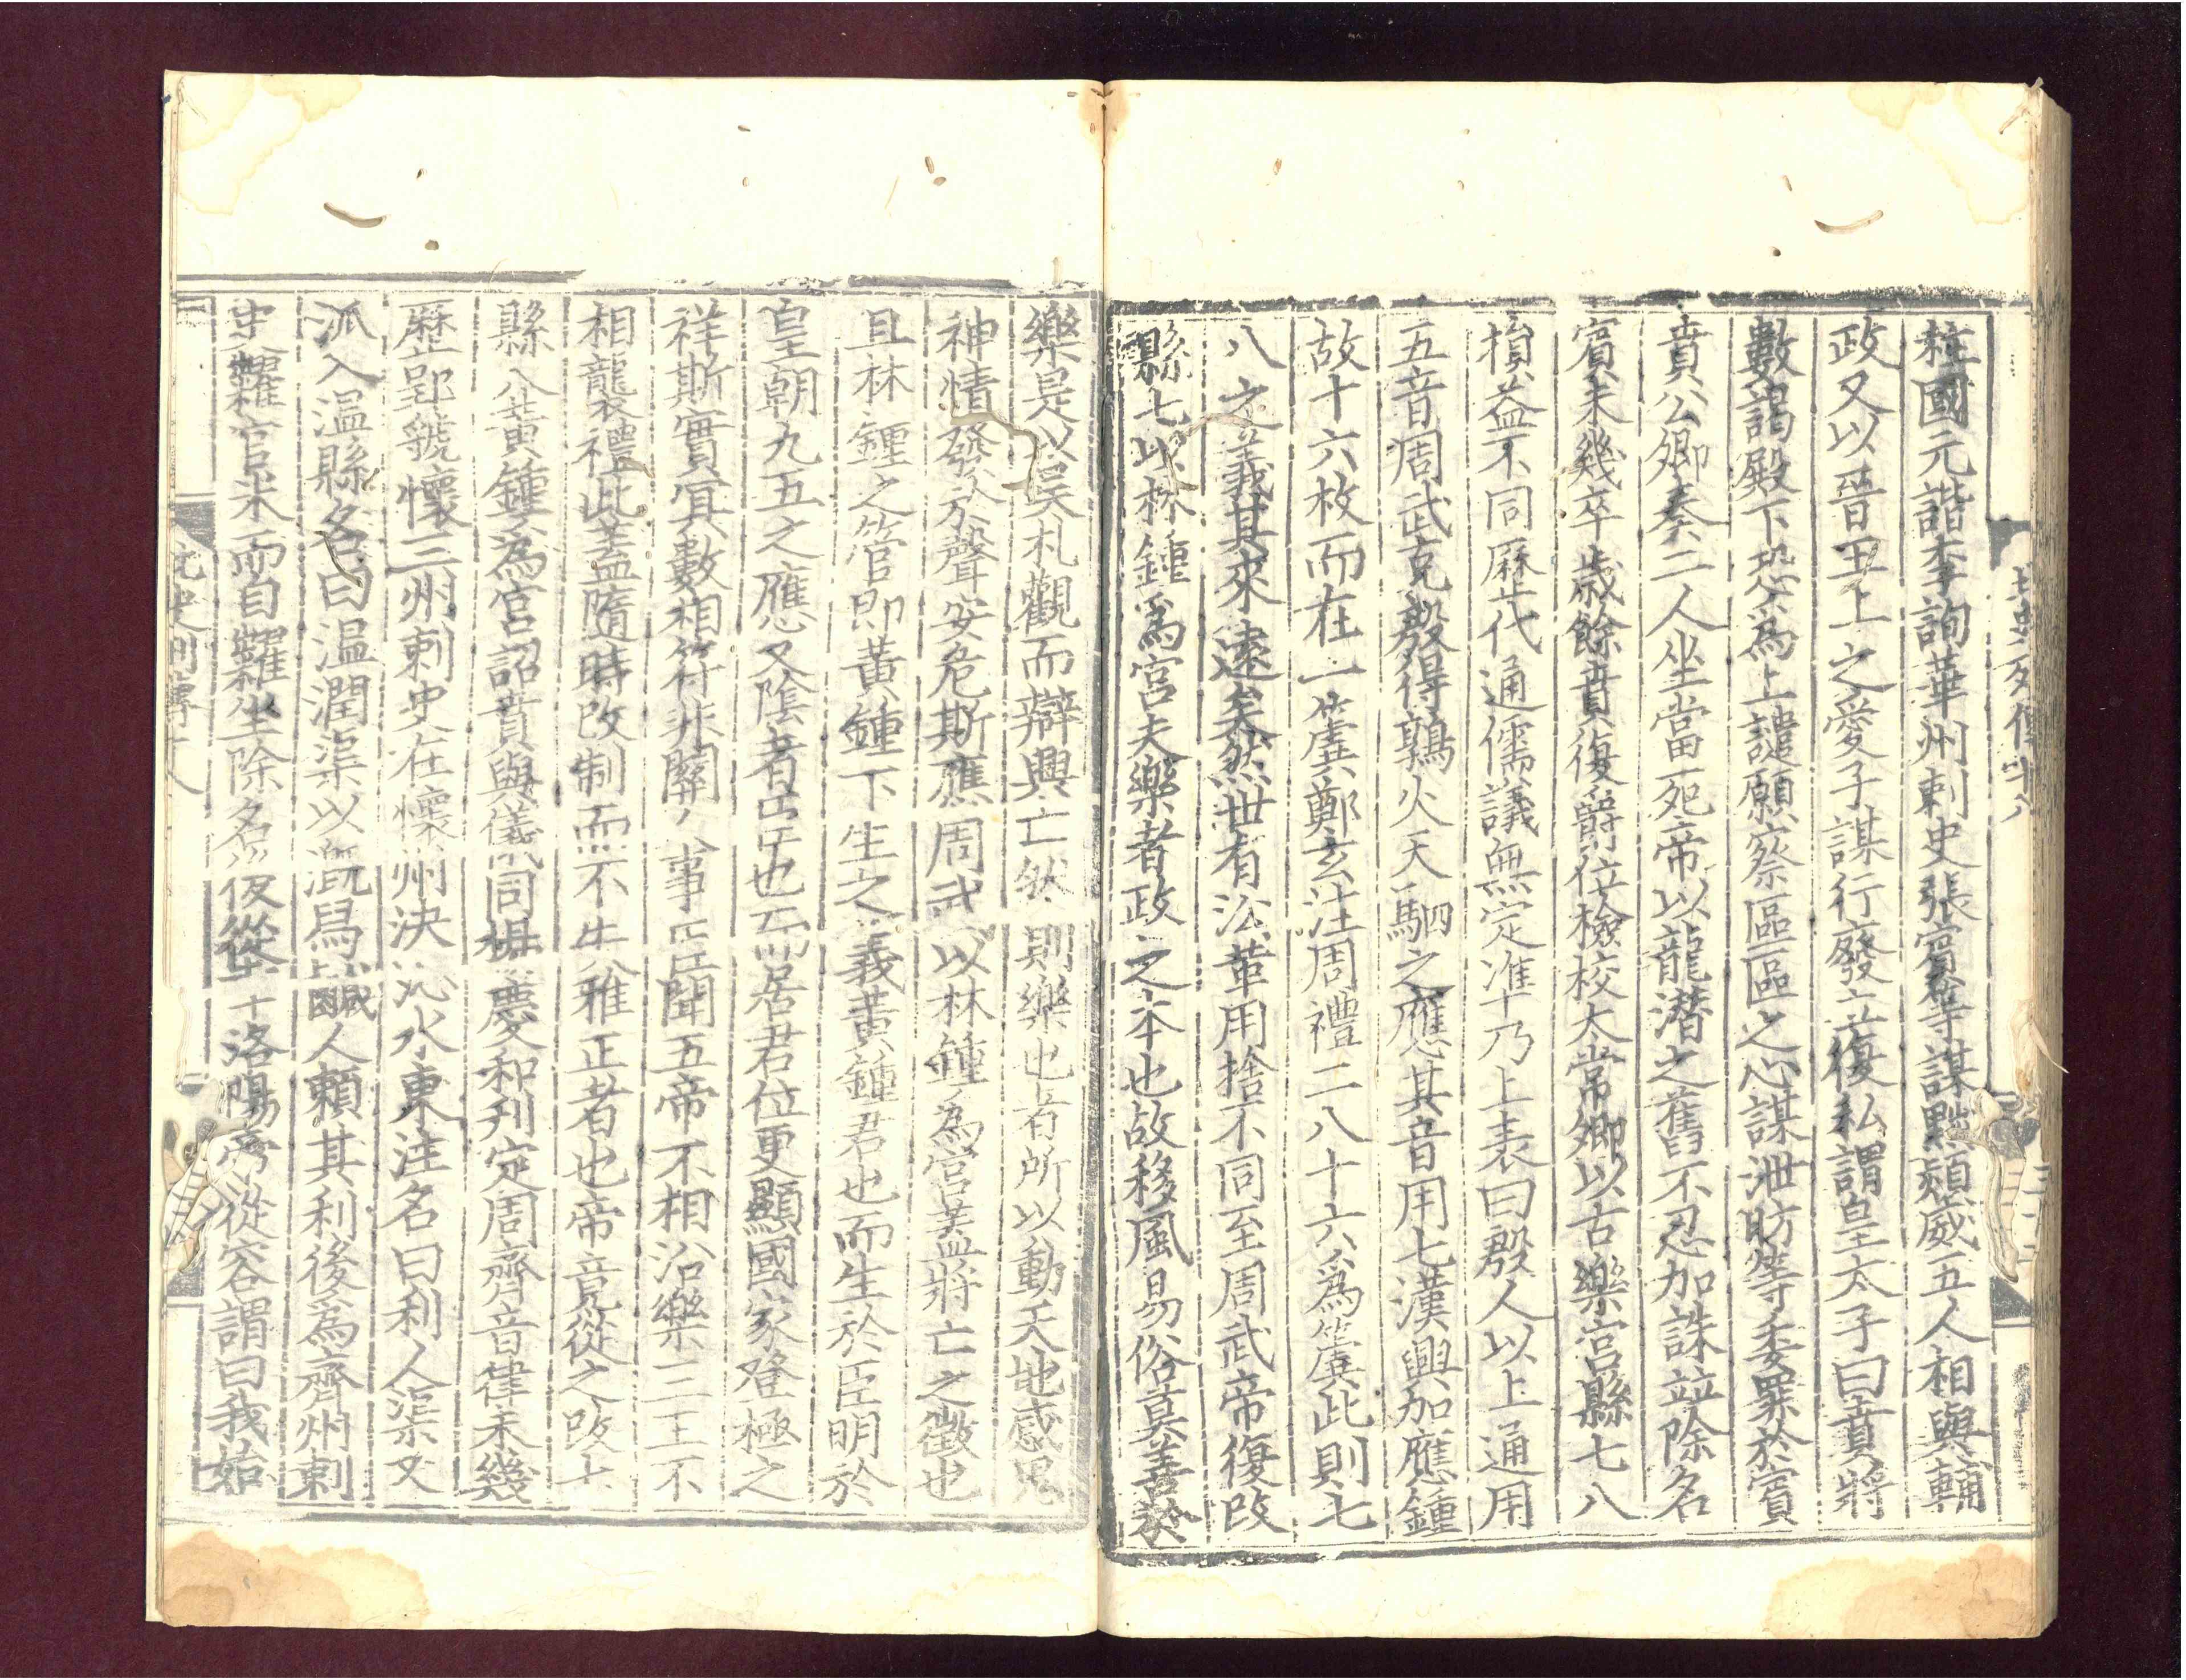 柱國元諧李詢華州刺史張賓等謀黜熲威五人相與輔
政又以晉王上之愛子謀行廢立復私謂皇太子曰賁將
數謁殿下恐爲上譴願察區區之心謀泄昉等委罪於賓
賁公卿奏二人坐當死帝以龍潛之舊不忍加誅並除名
賓未幾卒歲餘賁復爵位檢校太常卿以古樂宮縣七八
損益不同歷代通儒議無定準乃上表曰殷人以上通用
五音周武克殷得鶉火天駟之應其音用七漢興加應鍾
故十六枚而在一簴鄭玄注周禮二八十六爲簴此則七
八之義其來遠矣然世有沿革用捨不同至周武帝復改
縣七以林鍾爲宮夫樂者政之本也故移風易俗莫善於
樂是以吳札觀而辯興亡然則樂也者所以動天地感鬼
神情發於聲安危斯應周武以林鍾爲宮蓋將亡之徵也
且林鍾之管即黃鍾下生之義黃鍾君也而生於臣明於
皇朝九五之應又陰者臣也而居君位更顯國家登極之
祥斯實冥數相符非關人事臣聞五帝不相沿樂三王不
相襲禮此蓋隨時改制而不失雅正者也帝竟從之改七
縣八黃鍾爲宮詔賁與儀同楊慶和刊定周齊音律未幾
歷郢虢懷三州刺史在懷州決沁水東注名曰利人渠又
派入溫縣名曰溫潤渠以漑舄鹵人賴其利後爲齊州刺
史糶官米而自糶坐除名後從幸洛陽帝從容謂曰我始
北史列傳十八